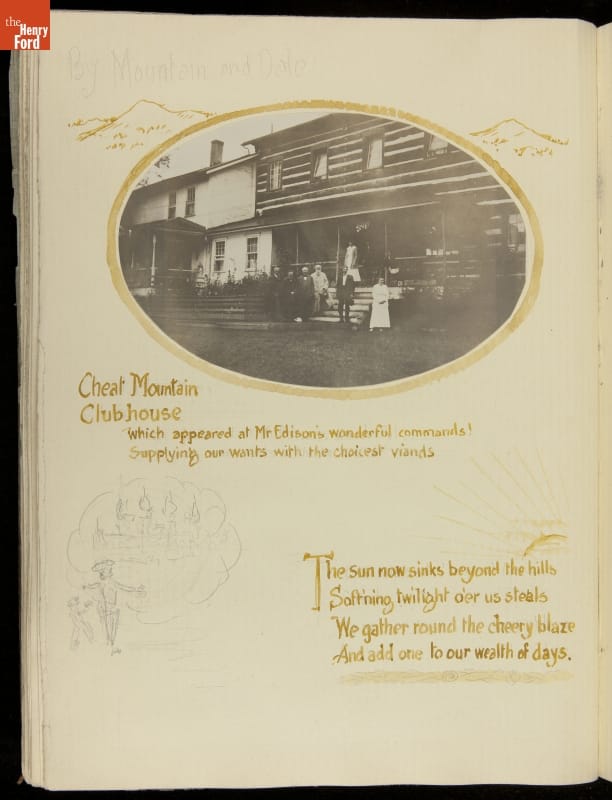 the
Henry
Ford
By Mountain and Dale!
Cheat Mountain
Clubhouse
Which appeared at Mr Edison's wonderful commands!
Supplying our wants with the choicest viands
The sun now sinks beyond the hills
Soft'ning twilight o'er us steals
We gather round the cheery blaze
And add one to our wealth of days.